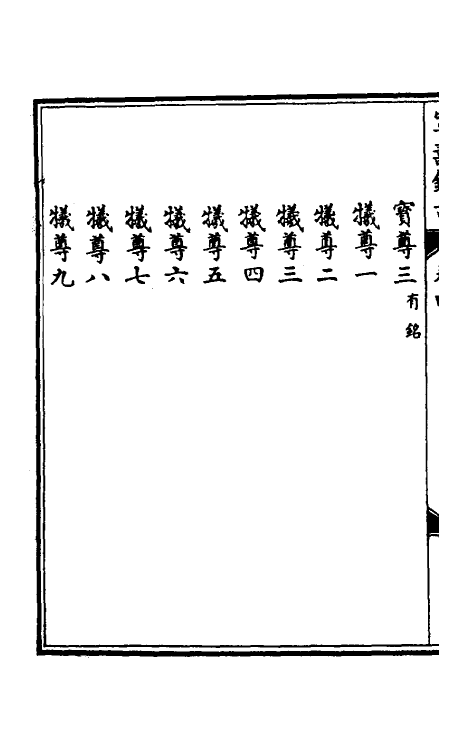 寳尊三有銘
犧尊一
犧尊二
犧尊三
犧尊四
犧尊五
犧尊六
犧尊七
犧尊八
犧尊九